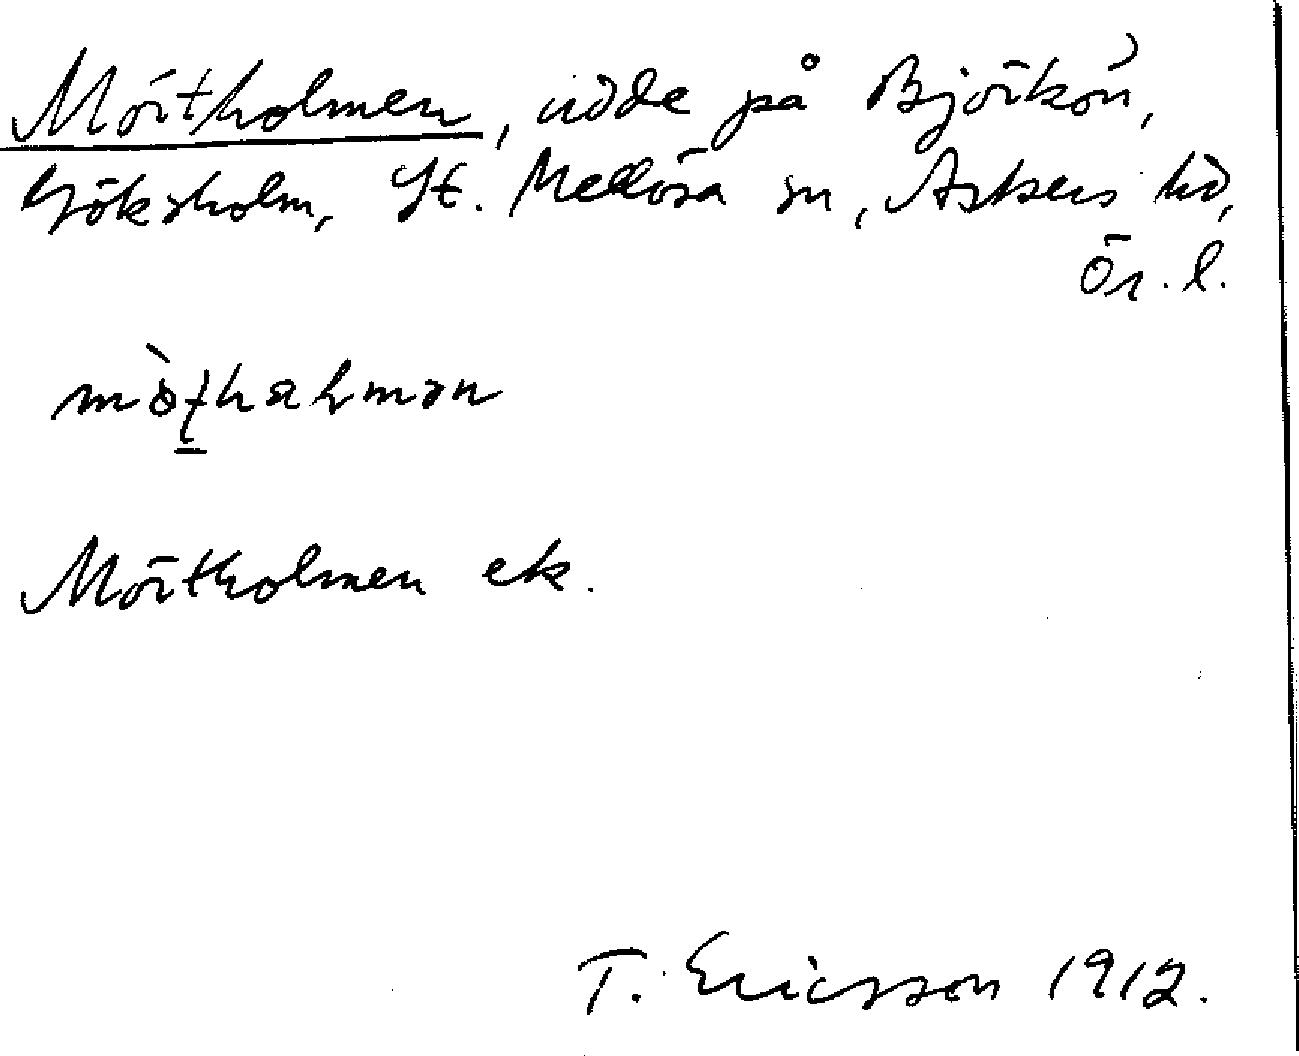 Mörtholmen, udde på Björkön,
Göksholm, St. Mellösa sn, Askers hd,
Ör. l.
Mörtholmen ek.
T. Ericsson 1912.